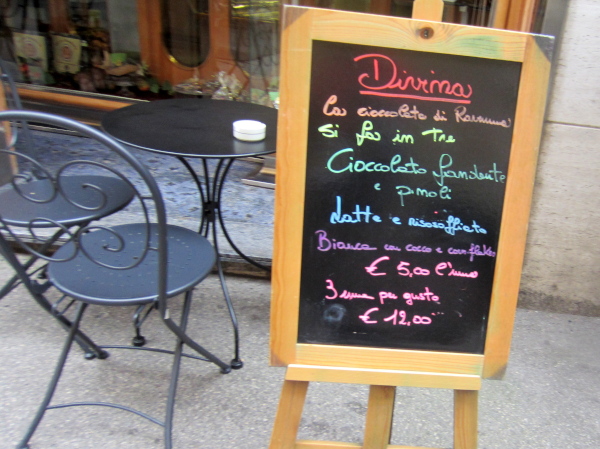 Divina
La cioccolata di Ravenna
si fa in Tre
Cioccolato fondente
e pinoli
Latte e risosoffiato
Bianca con cocco e cornflakes
€ 5,00 l'uno
3 uno per gusto
€ 12,00